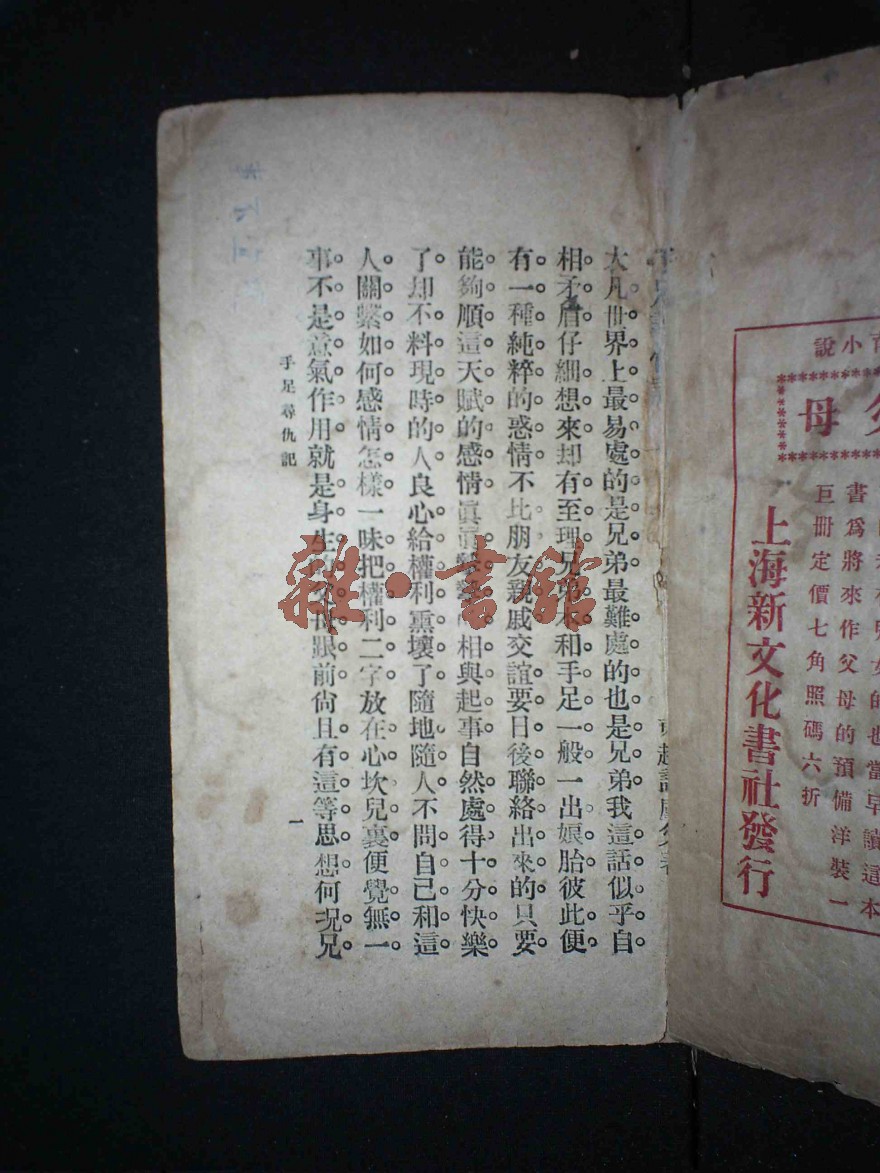 小說
母
書為將來作父母的預備洋裝一
巨冊定價七角照碼六折
上海新文化書社發行
大凡世界上最易處的是兄弟最難處的也是兄弟我這話似乎自
相矛盾仔細想來却有至理兄弟本和手足一般一出孃胎彼此便
有一種純粹的惑情不比朋友親戚交誼要日後聯絡出來的只要
能夠順這天賦的感情眞
相與起事自然處得十分快樂
了却不料現時的人良心給權利熏壞了隨地隨人不問自己和這
人關繫如何感情怎樣一味把權利二字放在心坎兒裏便覺無一
事不是意氣作用就是身生的父母跟前尙且有這等思想何況兄
手足尋仇記
一
雜·書館